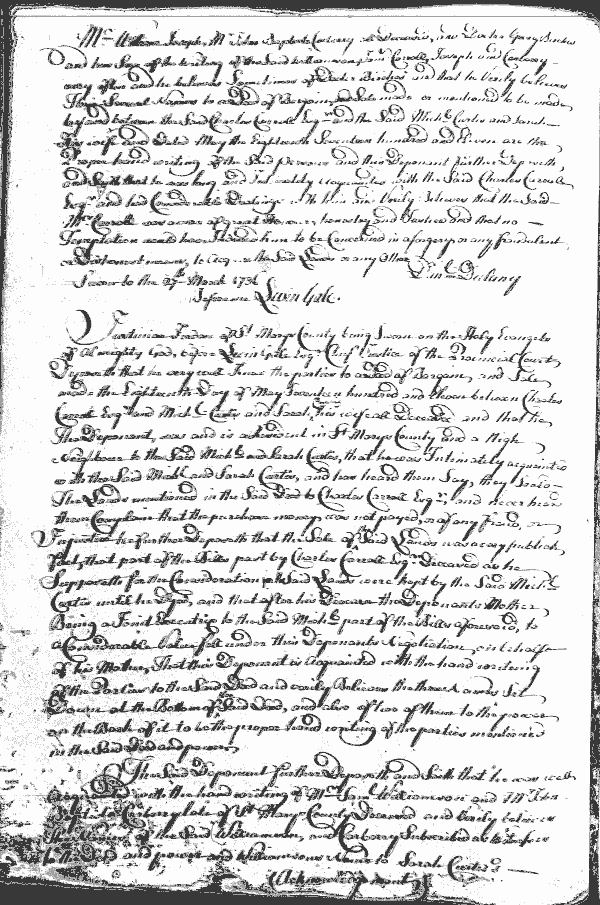 Mr William Joseph, Mr John Baptista Carbery all Deceased, and Doctor Gary Birches
and has Seen of the writing of the Said Williamson Carroll, Joseph and Carbery
very often and he believes Sometimes of Doctor Birches and that he Verily believes
Their Several Names to a Deed of Bargain and Sale made or mentioned to be made
by and between the Said Charles Carroll Esqr and the Said Michl Curtis and Sarah
His wife and Dated May the Eighteenth Seventeen hundred and Eleven are the
Proper hand writing of the Said persons and this Deponent further Deposeth
and Saith that he was long and Intimately acquainted with the Said Charles Carroll
Esqr and had Considerable Dealings with him Verily believes that the Said
Mr Carroll was a man of great Honour, honesty and Justice and that no
Temptation would have Induced him to be Concerned in a forgery or any fraudulent
or Dishonest means, to the Said Lands or any Other
Sworn to the 27th March 1734
Before me Levin Gale.
Justinian Jordan of St Marys County being Sworn on the Holy Evangels
of Almighty God, before Levin Gale Esqr Chief Justice of the Provincial Court
Deposeth that he very well knew the parties to a Deed of Bargain and Sale
made the Eighteenth Day of May Seventeen hundred and Eleven between Charles
Carroll Esqr and Michl Curtis and Sarah his wife all Deceased and that he
The Deponent, was and is a resident in St Marys County and a Nigh
Neighbour to the Said Michl and Sarah Curtis, that he was Intimately acquainted
with the Said Michl and Sarah Curtis, and has heard them Say, they Sold
The Lands mentioned in the Said Deed to Charles Carroll Esqr, and never heard
them Complain that the purchase money was not payed, or of any fraud, or
Injustice he Further Deposeth that the Sale of the Said Lands was a very publick
Fact, that part of the Bills past by Charles Carroll Esqr Deceased as he
Supposeth for the Consideration of the Said Lands were kept by the Said Michl
Curtis until he Dyed, and that after his Decease the Deponents Mother
Being a Joint Executrip to the Said Michl part of the Bills aforesaid, to
a Considerable Value fell under this Deponents Negotiation, on behalf
of his Mother, That this Deponent is acquainted with the hand writing
of the Parties to the Said Deed and verily Believes the three Names Set
Down at the Bottom of Said Deed, and also of two of them to the power
on the Back of it to be the proper hand writing of the parties mentioned
in the Said Deed and power,
The Said Deponent further Deposeth and Saith that he was well
with the hand writing of Mr Saml Williamson and Mr John
Baptista Carbery late of St Marys County Deceased and Verily believes
the Names of the Said Williamson, and Carbery Subscribed as
to the Deed and power and Williamsons Name to Sarah Curtis's
(Acknowledgement)